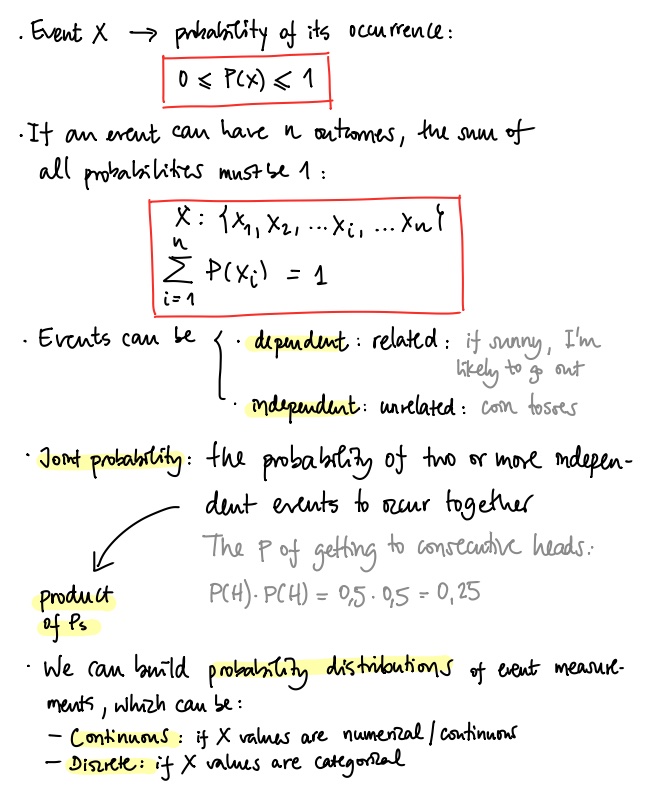 . Event X → probability of its occurrence:
0 ≤ P(X) ≤ 1
. If an event can have n outcomes, the sum of
all probabilities must be 1:
X: {X1, X2, ... Xi, ... Xn}
n
∑ P(Xi) = 1
i=1
. Events can be { . dependent: related: if sunny, I'm
likely to go out
. independent: unrelated: coin tosses
. Joint probability: the probability of two or more indepen-
dent events to occur together
The P of getting to consecutive heads:
P(H) · P(H) = 0,5 · 0,5 = 0,25
product
of Ps
. We can build probability distributions of event measure-
ments, which can be:
- Continuous: if X values are numerical/continuous
- Discrete: if X values are categorical